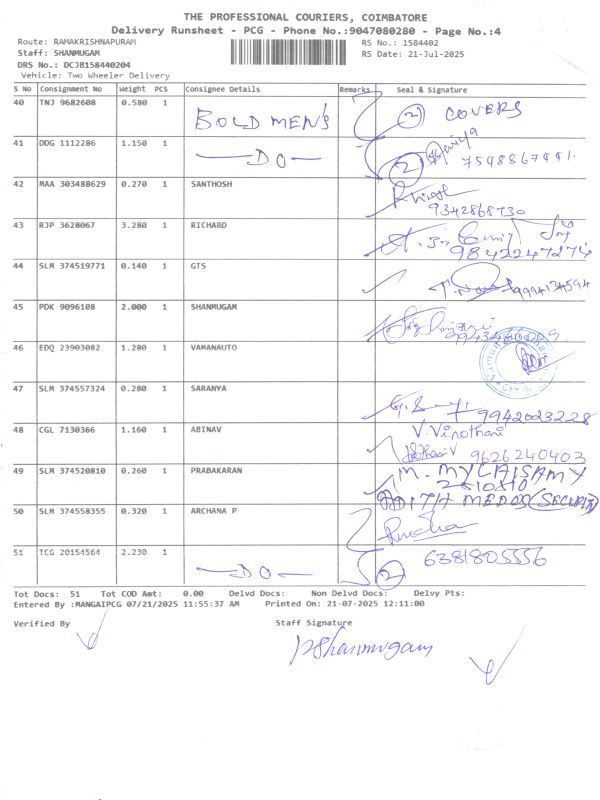 THE PROFESSIONAL COURIERS, COIMBATORE
Delivery Runsheet - PCG - Phone No.:9047080280 - Page No.:4
Route: RAMAKRISHNAPURAM RS No.: 1584402
Staff: SHANMUGAM RS Date: 21-Jul-2025
DRS No.: DCJ8158440204
Vehicle: Two Wheeler Delivery
S No Consignment No Weight PCS Consignee Details Remarks Seal & Signature
40 TNJ 9682608 0.580 1 BOLD MEN'S 2 COVERS
41 DDG 1112286 1.150 1 —DO— 2
42 MAA 303488629 0.270 1 SANTHOSH
9342868730
43 RJP 3628067 3.280 1 RICHARD
9842247274
44 SLM 374519771 0.140 1 GTS
9994134594
45 PDK 9096108 2.000 1 SHANMUGAM
46 EDQ 23903082 1.280 1 VAMANAUTO
47 SLM 374557324 0.280 1 SARANYA
9942023228
48 CGL 7130366 1.160 1 ABINAV V. Vinothani
9626240403
49 SLM 374520810 0.260 1 PRABAKARAN M. MYLAISAMY
50 SLM 374558355 0.320 1 ARCHANA P
51 TCG 20154564 2.230 1 —DO— 2 6381805556
Tot Docs: 51 Tot COD Amt: 0.00 Delvd Docs: Non Delvd Docs: Delvy Pts:
Entered By :MANGAIPCG 07/21/2025 11:55:37 AM Printed On: 21-07-2025 12:11:00
Verified By Staff Signature
P Shanmugam